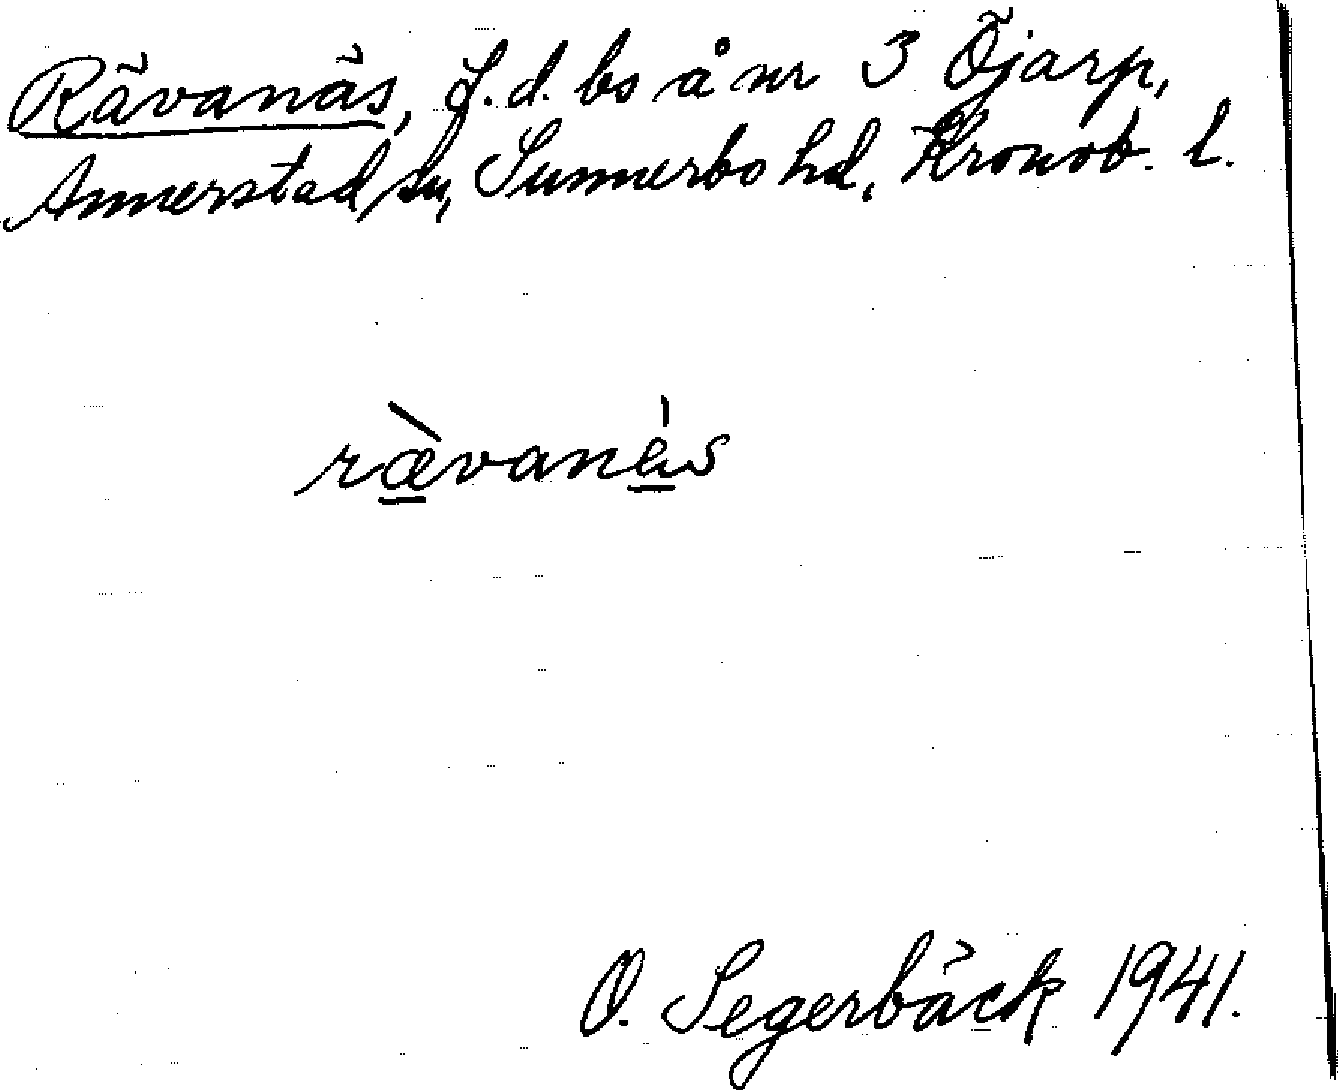 Rävanäs, f.d. bs å nr 3 Öjarp,
Annerstad sn, Sunnerbo hd, Kronob. l.
rævanǽs
O. Segerbäck 1941.